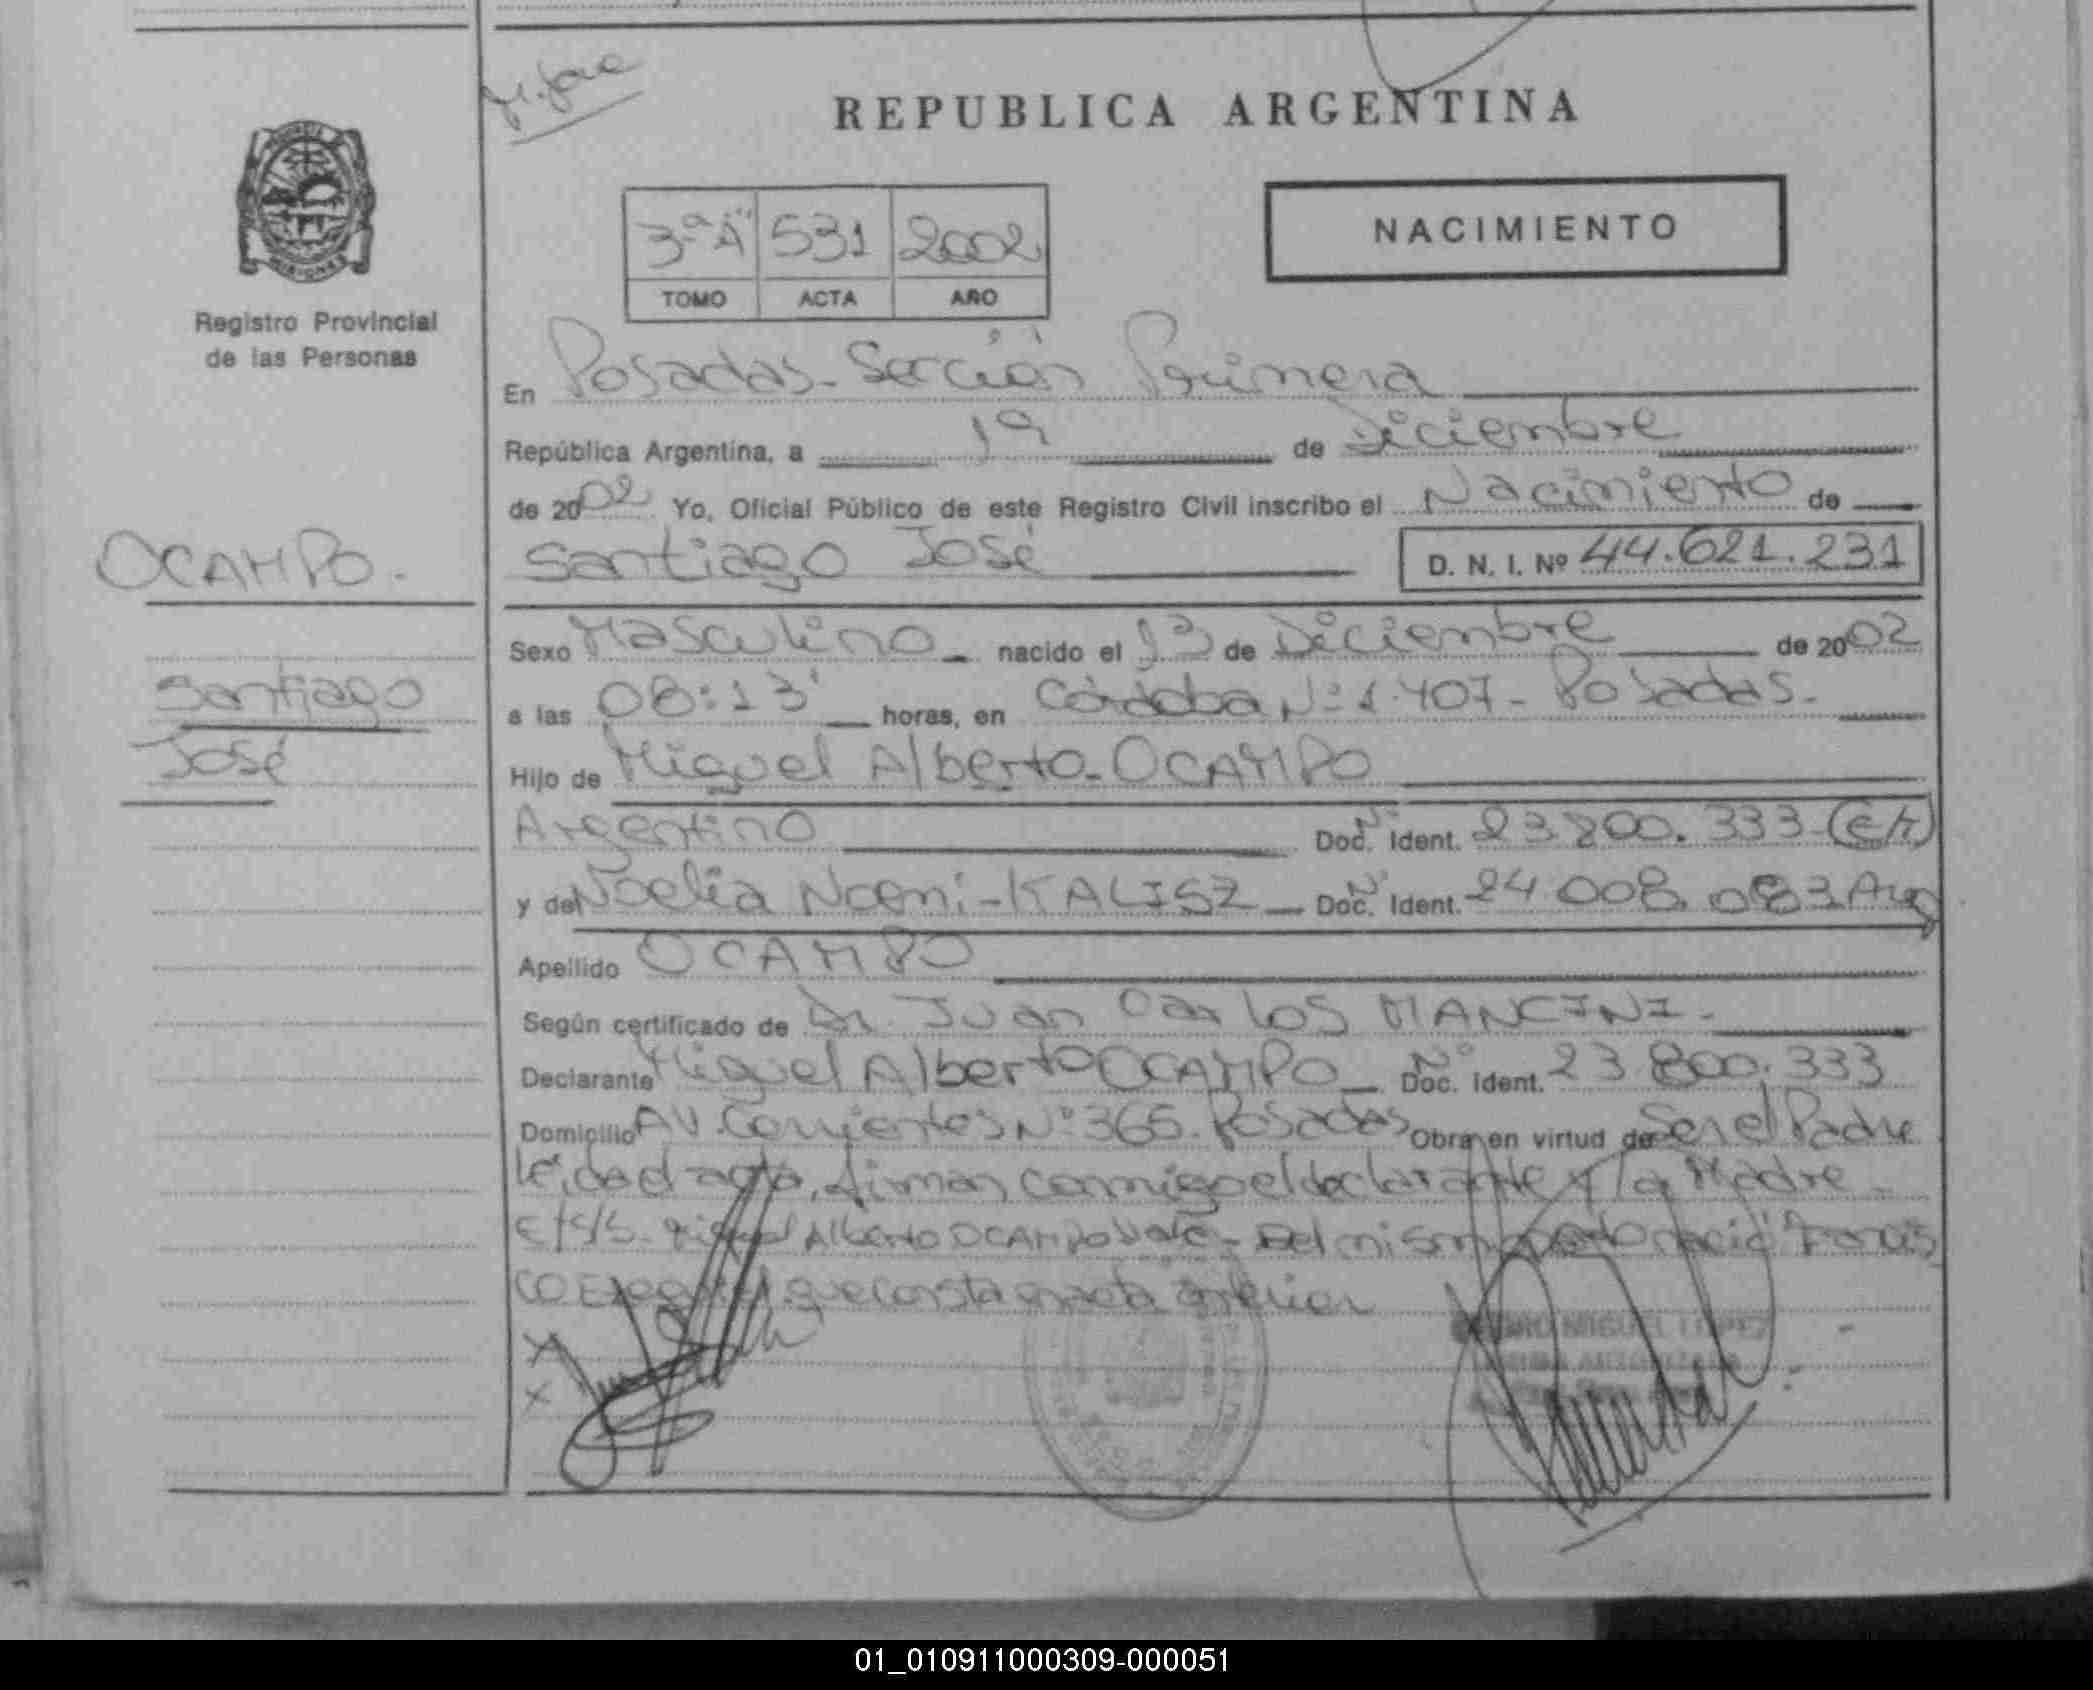 REPUBLICA ARGENTINA
NACIMIENTO
3ª "A" 531 2002
TOMO ACTA AÑO
MISIONES
Registro Provincial
de las Personas
OCAMPO.
Santiago
José
En Posadas - Sección Primera
República Argentina, a 19 de Diciembre
de 2002 Yo, Oficial Público de este Registro Civil inscribo el Nacimiento de
Santiago José D. N. I. Nº 44.621.231
Sexo Masculino nacido el 13 de Diciembre de 2002
a las 08:13' horas, en Córdoba Nº 1.407 - Posadas.
Hijo de Miguel Alberto - OCAMPO
Argentino Nº Doc. Ident. 23.800.333
y de Noelia Noemi - KALISZ Nº Doc. Ident. 24.008.083 Arg
Apellido OCAMPO
Según certificado de Dr. Juan Carlos MANCINI.
Declarante Miguel Alberto OCAMPO Nº Doc. Ident. 23.800.333
Domicilio AV. Corrientes Nº 365. Posadas Obra en virtud de Ser el Padre
Leída el acta, firman conmigo el declarante y la Madre.
E/S/S. Miguel Alberto OCAMPO Vale - Del mismo parto nació Francis
co que consta en acta anterior
MIGUEL LOPEZ
01_010911000309-000051